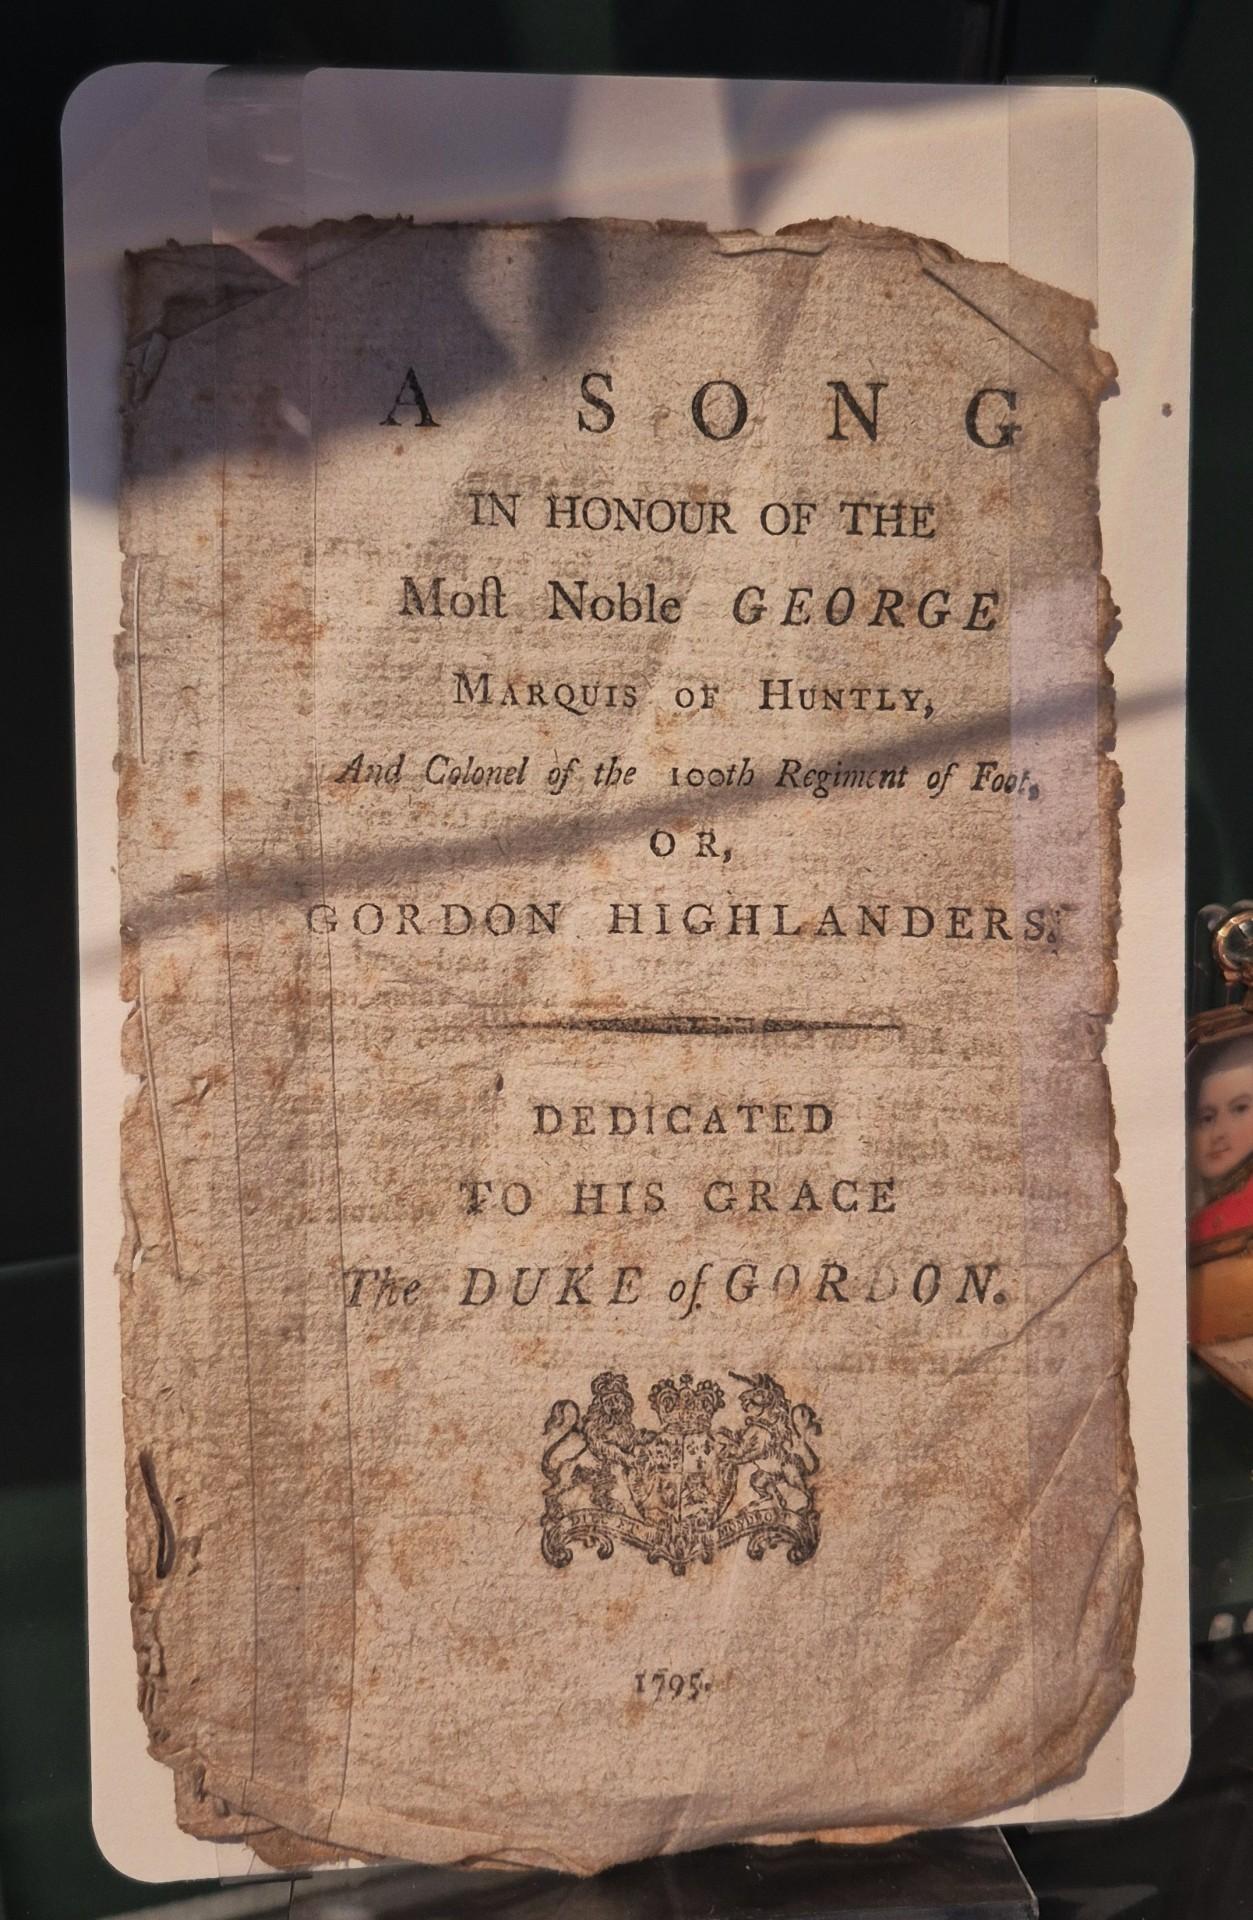 A SONG
IN HONOUR OF THE
Moſt Noble GEORGE
MARQUIS OF HUNTLY,
And Colonel of the 100th Regiment of Foot,
OR,
GORDON HIGHLANDERS.
DEDICATED
TO HIS GRACE
The DUKE of GORDON.
DIEU ET MON DROIT
1795.